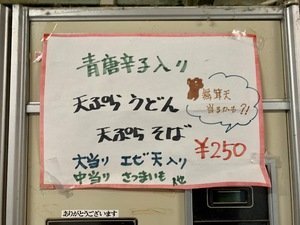 青唐辛子入り
天ぷら うどん
天ぷら そば
天
当るかも?!
¥250
大当り エビ天入り
中当り さつまいも 他
ありがとうございます